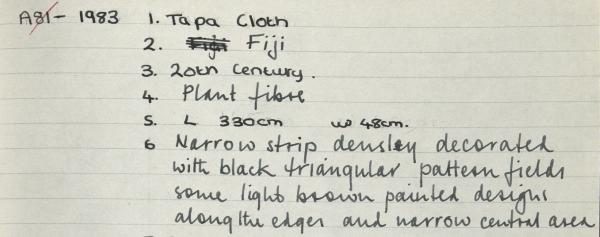 A81 - 1983 1. Tapa Cloth
2. Fiji Fiji
3. 20th Century.
4. Plant fibre
5. L 330cm w 48cm.
6 Narrow strip densley decorated
with black triangular pattern fields
some light brown painted designs
along the edges and narrow central area